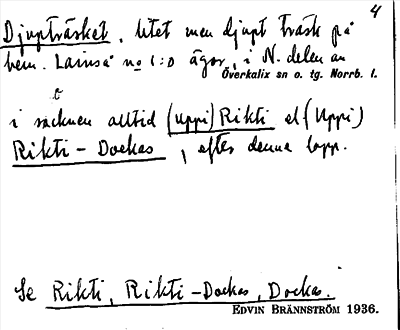 4
Djupträsket, litet men djupt träsk på
hem. Lainså no 1:o ägor, i N. delen av
Överkalix sn o. tg. Norrb. l.
i socknen alltid (Uppi) Rikti el (Uppi)
Rikti - Dockas, efter denna lapp.
Se Rikti, Rikti - Dockas, Dockas.
EDVIN BRÄNNSTRÖM 1936.